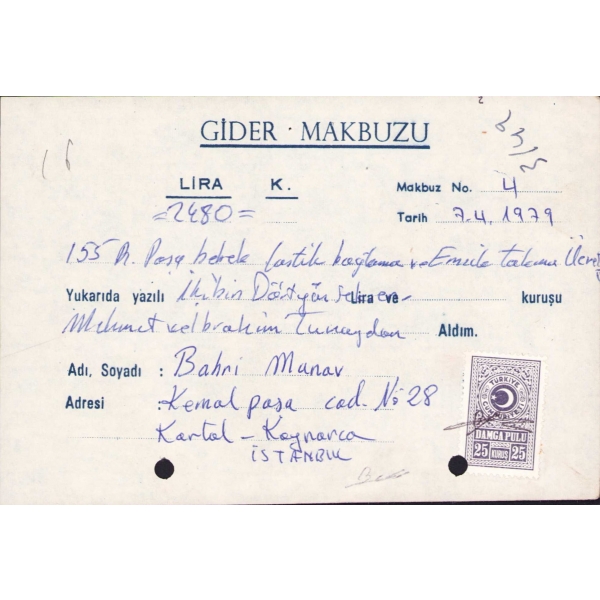 GİDER · MAKBUZU
LİRA K.
=2480=
Makbuz No. 4
Tarih 7.4.1979
155 Paşa bebek lastik bağlama ve Emzik takma Ücreti
Yukarıda yazılı İkibin Dörtyüz Seksen Lira ve kuruşu
Mehmet ve İbrahim Tunaydan Aldım.
Adı, Soyadı : Bahri Manav
Adresi : Kemal paşa cad. No 28
Kartal - Kaynarca
İSTANBUL
TÜRKİYE
DAMGA PULU
25 KURUŞ 25